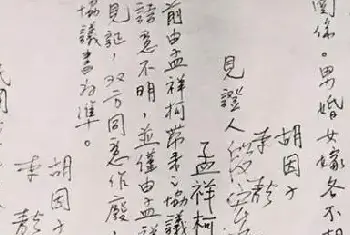 關係。男婚女嫁各不
胡因子
李敖
見證人
孟祥柯
前由孟祥柯帶来之協議
語意不明，並僅由孟祥
見証，双方同意作廢
協議書為準。
胡因子
李敖